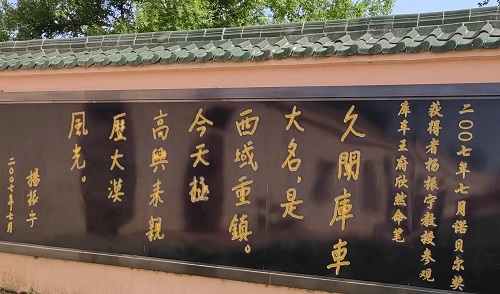 二〇〇七年七月诺贝尔奖
获得者杨振宁教授参观
库车王府欣然命笔
久闻庫車
大名，是
西域重镇。
今天極
高興来親
歷大漠
風光。
楊振宁
二〇〇七年七月